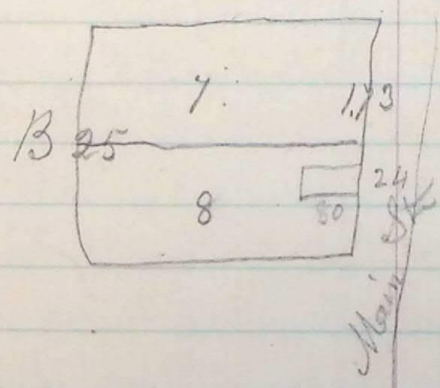 7.
1.73
B 25
24
8
80
Main St